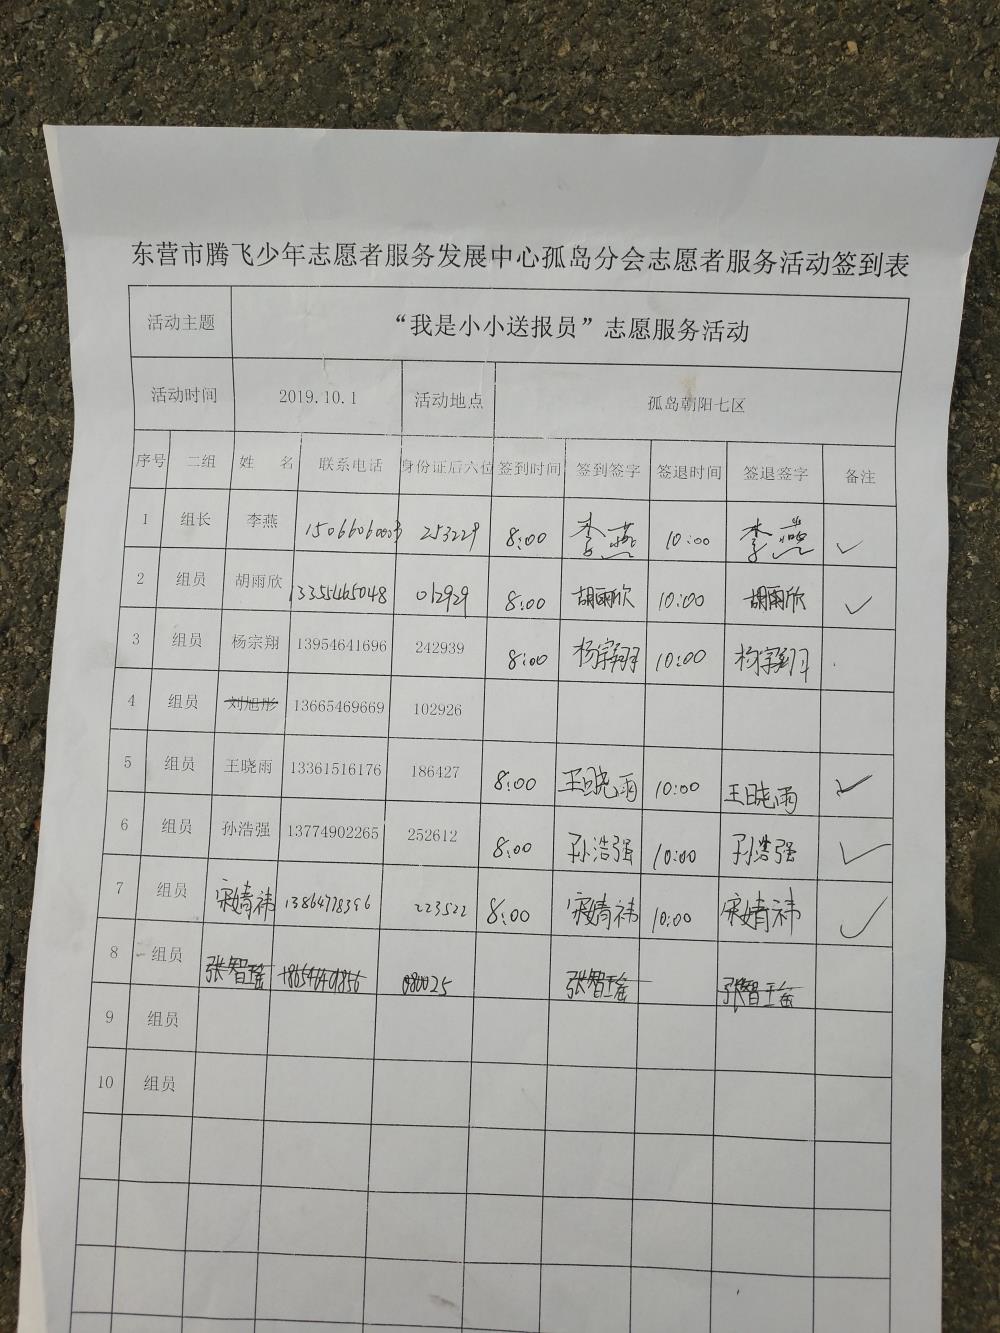 东营市腾飞少年志愿者服务发展中心孤岛分会志愿者服务活动签到表
活动主题 “我是小小送报员”志愿服务活动
活动时间 2019.10.1 活动地点 孤岛朝阳七区
序号 二组 姓名 联系电话 身份证后六位 签到时间 签到签字 签退时间 签退签字 备注
1 组长 李燕 15066060003 253229 8:00 李燕 10:00 李燕 ✓
2 组员 胡雨欣 13355465048 012929 8:00 胡雨欣 10:00 胡雨欣 ✓
3 组员 杨宗翔 13954641696 242939 8:00 杨宗翔 10:00 杨宗翔
4 组员 刘旭彤 13665469669 102926
5 组员 王晓雨 13361516176 186427 8:00 王晓雨 10:00 王晓雨 ✓
6 组员 孙浩强 13774902265 252612 8:00 孙浩强 10:00 孙浩强 ✓
7 组员 宋婧祎 13864778396 223522 8:00 宋婧祎 10:00 宋婧祎 ✓
8 组员 张智瑶 080025 张智瑶 张智瑶
9 组员
10 组员